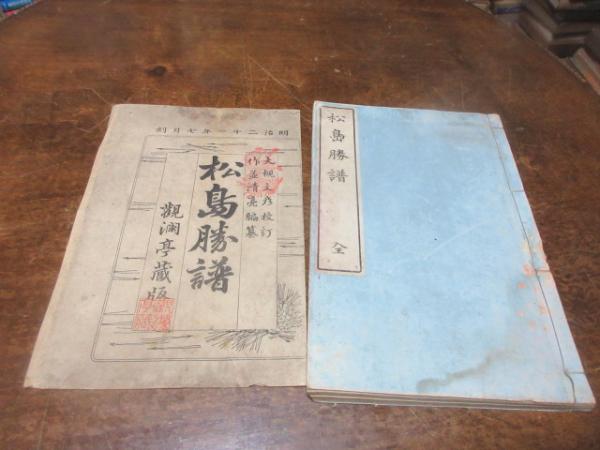 明治二十一年七月刻
大槻文彦校訂
作並清亮編纂
松島勝譜
觀瀾亭藏版
松島勝譜 全